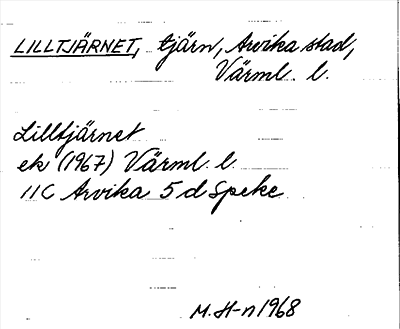 LILLTJÄRNET, tjärn, Arvika stad,
Värml. l.
Lilltjärnet
ek (1967) Värml. l.
11C Arvika 5 d Speke
M. H-n 1968